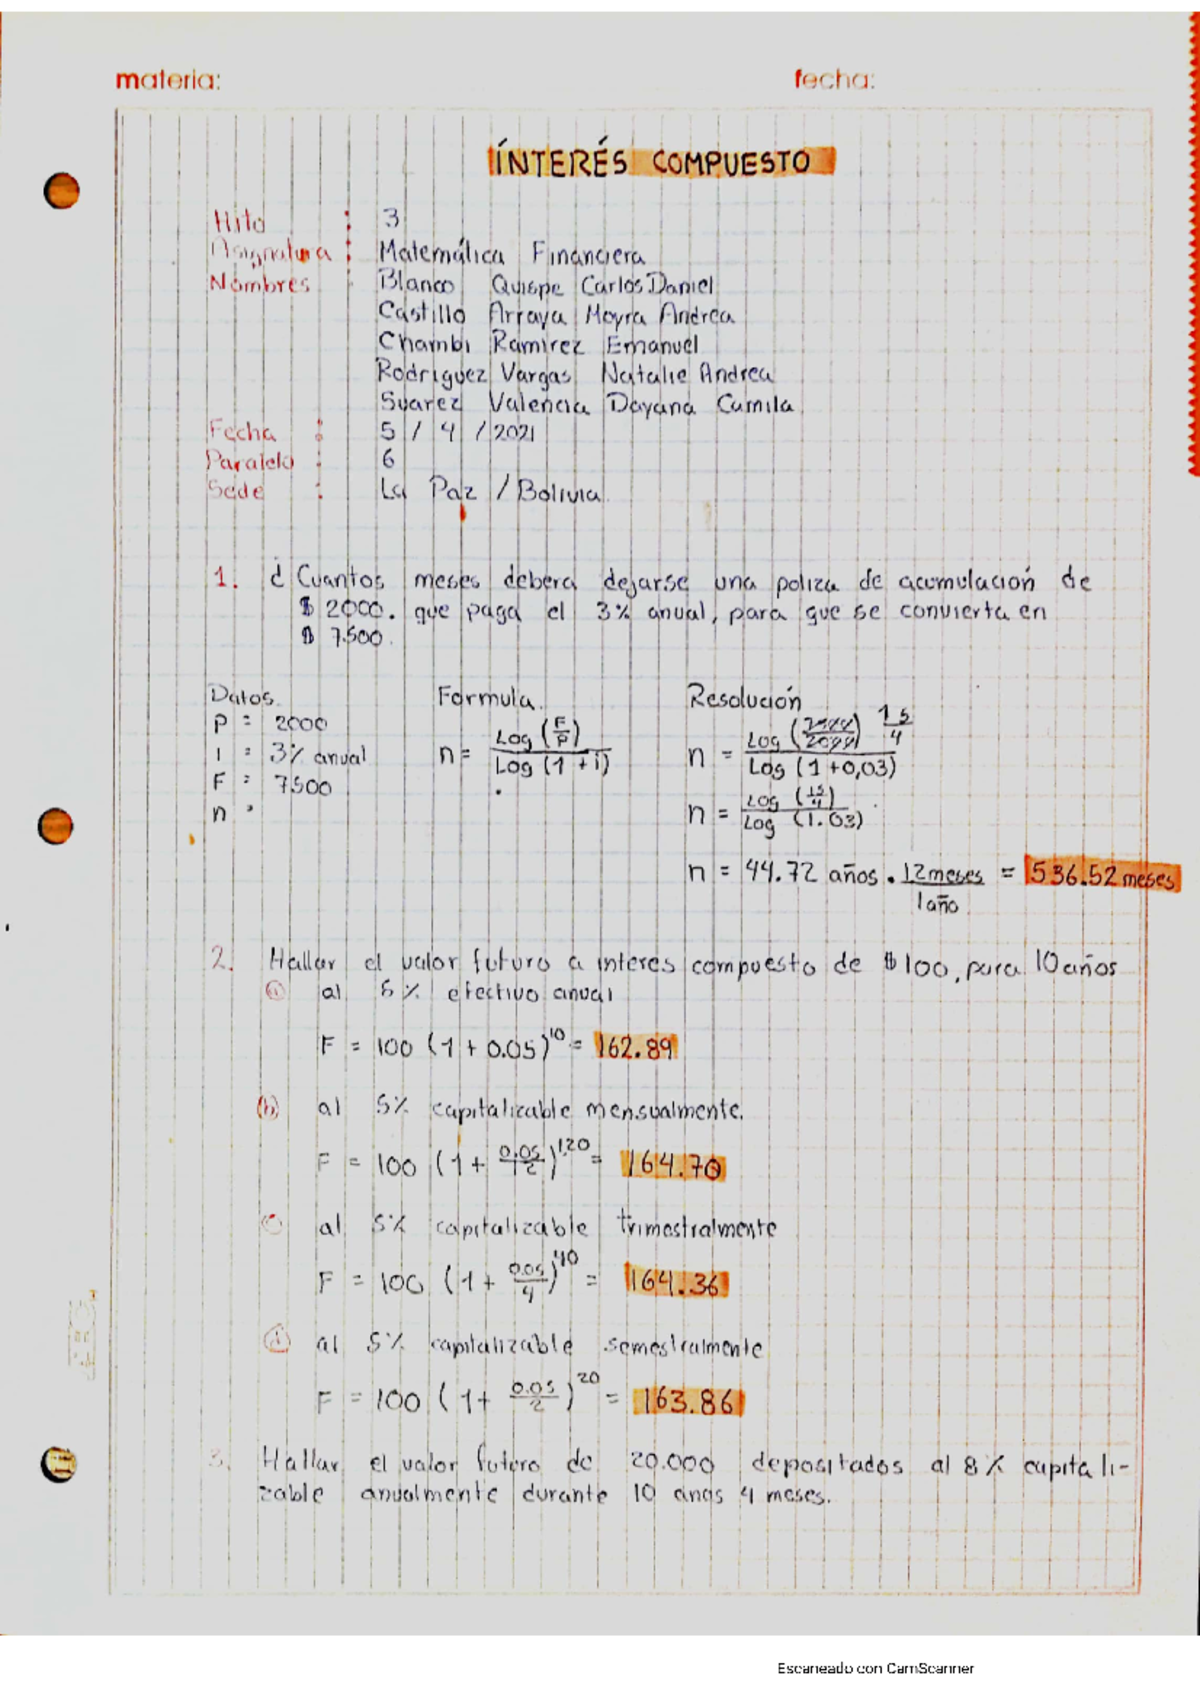 materia: fecha:
ÍNTERÉS COMPUESTO
Hito : 3
Asignatura : Matemática Financiera
Nombres : Blanco Quispe Carlos Daniel
Castillo Arraya Meyra Andrea
Chambi Ramirez Emanuel
Rodriguez Vargas Natalie Andrea
Suarez Valencia Dayana Camila
Fecha : 5 / 4 / 2021
Paralelo : 6
Sede : La Paz / Bolivia
1. ¿ Cuantos meses debera dejarse una poliza de acumulación de
$ 2000. que paga el 3% anual, para que se convierta en
$ 7.500.
Datos. Formula. Resolución
P = 2000 n = Log (F/P) / Log (1 + i) n = Log (7500/2000) 15/4 / Log (1+0,03)
i = 3% anual
F = 7500 n = Log (15/4) / Log (1.03)
n =
n = 44.72 años . 12meses / 1año = 536.52 meses
2. Hallar el valor futuro a interes compuesto de $ 100, para 10 años
a) al 5% efectivo anual
F = 100 (1 + 0.05)^10 = 162.89
b) al 5% capitalizable mensualmente.
F = 100 (1 + 0.05/12)^120 = 164.70
c) al 5% capitalizable trimestralmente
F = 100 (1 + 0.05/4)^40 = 164.36
d) al 5% capitalizable semestralmente
F = 100 (1 + 0.05/2)^20 = 163.86
3. Hallar el valor futuro de 20.000 depositados al 8% capitali-
zable anualmente durante 10 años 4 meses.
Escaneado con CamScanner